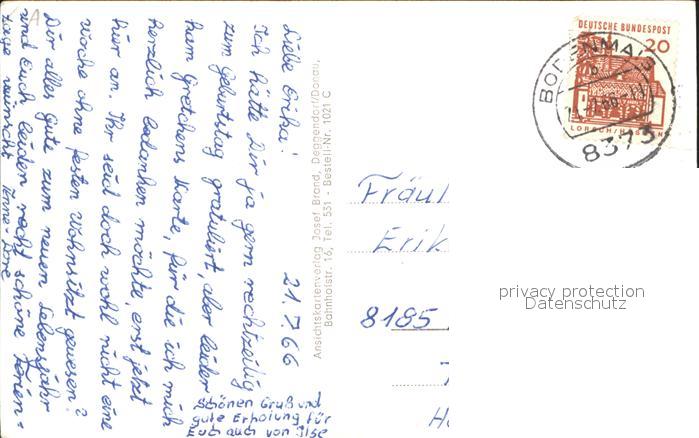 Liebe Erika!
21.7.66
Ich hätte Dir ja gern rechtzeitig
zum Geburtstag gratuliert, aber leider
kam Gretchens Karte, für die ich mich
herzlich bedanken möchte, erst jetzt
hier an. Ihr seid doch wohl nicht eine
Woche ohne festen Wohnsitzt gewesen?
Dir alles gute zum neuen Lebensjahr
und Euch beiden recht schöne Ferien-
tage wünscht Anne-Dore
Schönen Gruß und
gute Erholung für
Euch auch von Ilse
Ansichtskartenverlag Josef Brand, Deggendorf/Donau,
Bahnhofstr. 16, Tel. 531 - Bestell-Nr. 1021 C
DEUTSCHE BUNDESPOST
20
LORSCH/HESSEN
BODENMAIS
8373
Fräul
Erik
8185
privacy protection
Datenschutz